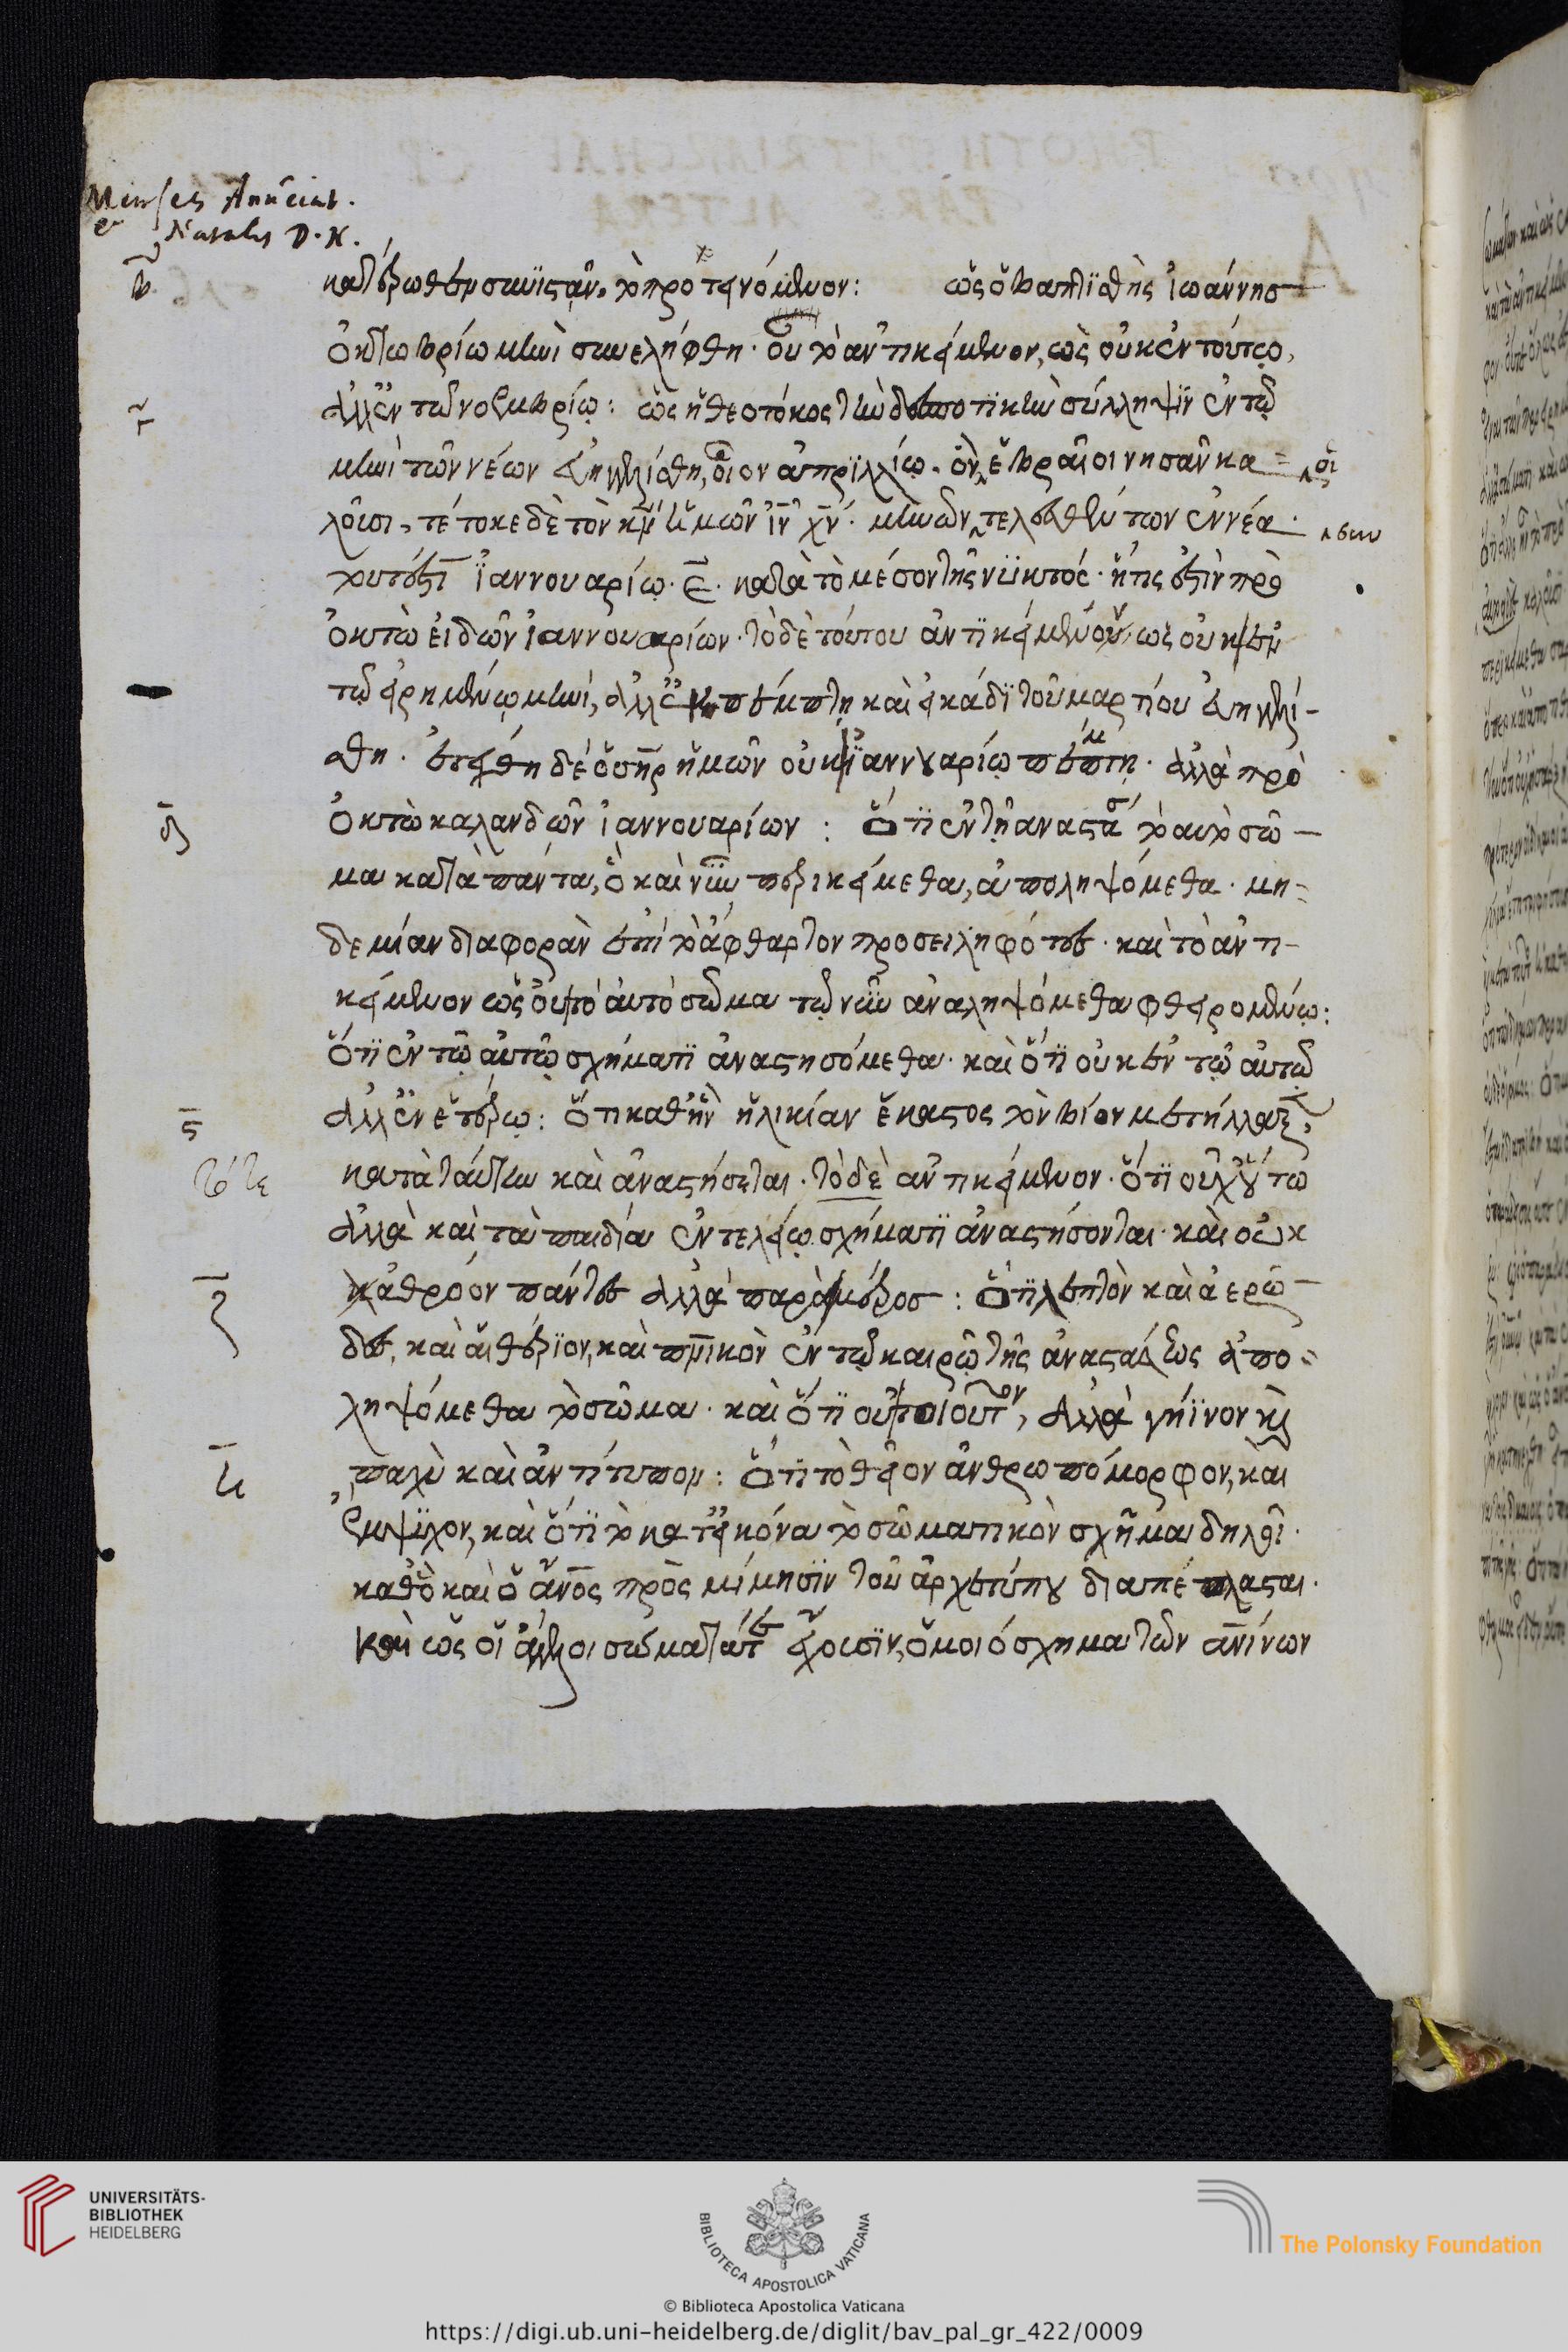 Menses Annũciat.
et Natalis D. N.
β
καθ' ἑκάτερωθεν συνιστᾶν τὸ προτεινόμενον: ὡς ὁ βαπτιστὴς ἰωάννης
ὀκτωβρίω μηνὶ συνελήφθη· οὗ τὸ ἀντικείμενον, ὡς οὐκ ἐν τούτῳ,
γ
ἀλλ' ἐν τῶ νοεμβρίῳ: ὡς ἡ θεοτόκος τὴν δεσποτικὴν σύλληψιν ἐν τῷ
μηνὶ τῶν νέων εὐηγγελίσθη, οἷον ἀπριλλίῳ. ὃν ἑβραῖοι νησᾶν κα=
οἱ
λοῦσι, τέτοκε δὲ τὸν κν ἡμῶν ιν χν. μηνῶν τελεσθέντων ἐννέα.
συν
τουτέστι ἰαννουαρίῳ. ε. κατὰ τὸ μέσον τῆς νυκτός. ἥτις ἐστὶν πρὸ
ὀκτὼ εἰδῶν ἰαννουαρίων. τὸ δὲ τούτου ἀντικείμενον, ὡς οὐκ ἐν
τῶ εἰρημένῳ μηνί, ἀλλ' ἐν πέμπτῃ καὶ εἰκάδι τοῦ μαρτίου εὐηγγελί-
σθη. ἐτέχθη δὲ ὁ σηρ ἡμῶν οὐκ ἰαννουαρίῳ πέμπτῃ. ἀλλὰ πρὸ
δ
ὀκτὼ καλανδῶν ἰαννουαρίων: ὅτι ἐν τῇ ἀναστάσει τὸ αυτὸ σῶ-
μα κατὰ πάντα, ὃ καὶ νῦν περικείμεθα, ἀποληψόμεθα. μη-
δεμίαν διαφορὰν ἐπὶ τὸ ἄφθαρτον προσειληφότες. καὶ τὸ ἀντι-
κείμενον ὡς οὐ τὸ ἀυτὸ σῶμα τῷ νῦν ἀναληψόμεθα φθειρομένῳ:
ὅτι ἐν τῷ αὐτῷ σχήματι ἀναστησόμεθα. καὶ ὅτι οὐκ ἐν τῷ αὐτῷ
ς
ἀλλ' ἐν ἑτέρῳ: ὅτι καθ' ἣν ἡλικίαν ἕκαστος τὸν βίον μετήλλαξε,
κατὰ ταύτην καὶ ἀναστήσεται. τὸ δὲ ἀντικείμενον. ὅτι οὐχ οὕτω
ἀλλὰ καὶ τὰ παιδία ἐν τελείῳ σχήματι ἀναστήσονται. καὶ οὐκ
ζ
ἀθρόον πάντες ἀλλὰ παρὰ μέρος: ὅτι λεπτὸν καὶ ἀερῶ-
δες, καὶ αἰθέριον, καὶ πνικὸν ἐν τῷ καιρῷ τῆς ἀναστάσεως ἀπο-
ληψόμεθα τὸ σῶμα. καὶ ὅτι οὐ τοιοῦτον, ἀλλὰ γήϊνον καὶ
η
παχὺ καὶ ἀντίτυπον: ὅτι τὸ θεῖον ἀνθρωπόμορφον, καὶ
ἔμψυχον, καὶ ὅτι τὸ κατ' εἰκόνα τὸ σωματικὸν σχῆμα δηλοῖ.
καθ' ὃ καὶ ὁ ανος πρὸς μίμησιν τοῦ ἀρχετύπου διαπέπλασται.
καὶ ὡς οἱ ἄγγελοι σώματα τε ἔχουσιν, ὁμοιόσχημα τῶν ανίνων
UNIVERSITÄTS-
BIBLIOTHEK
HEIDELBERG
BIBLIOTECA APOSTOLICA VATICANA
The Polonsky Foundation
© Biblioteca Apostolica Vaticana
https://digi.ub.uni-heidelberg.de/diglit/bav_pal_gr_422/0009